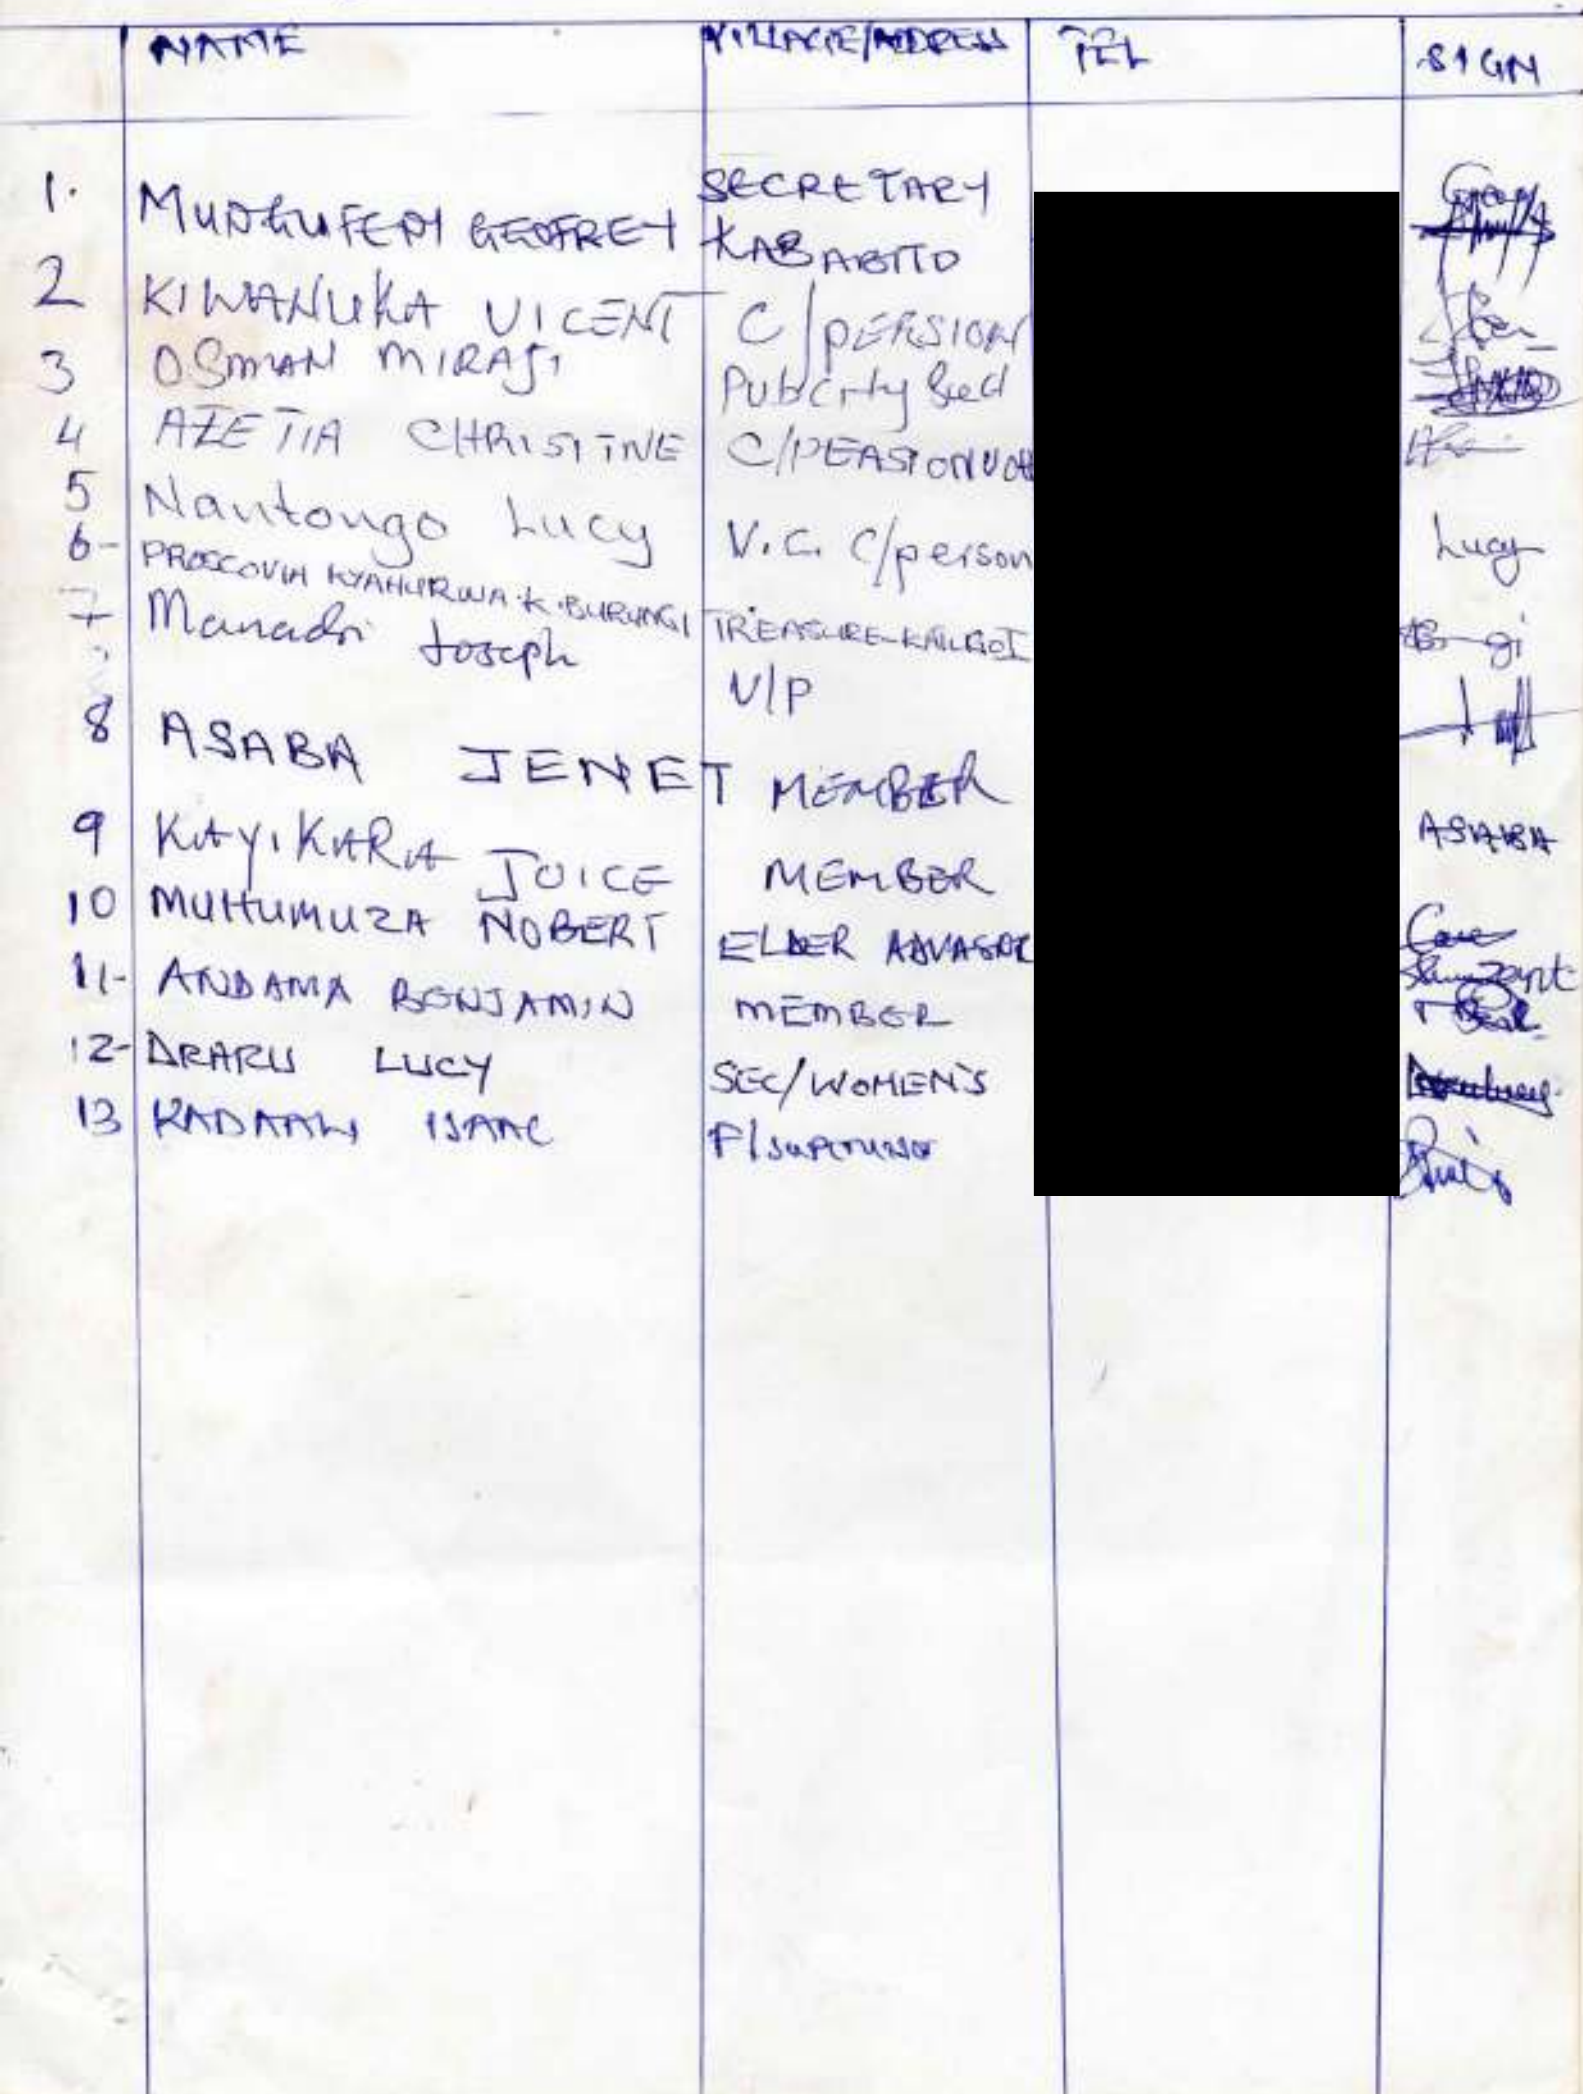 NAME VILLAGE/ADDRESS TEL SIGN
1. MUNGUFENI GEOFREY SECRETARY KABABITO
2 KIWANUKA VICENT C/PERSION
3 OSMAN MIRAJI
4 AZETIA CHRISTINE
5 Nantongo Lucy V.C. C/person Lucy
6- PROSCOVIA KYAHURWA.K.BURUNGI TREASURE-
7 Manadri Joseph V/P
8 ASABA JENET MEMBER ASABA
9 KAYIKARA JOICE MEMBER
10 MUHUMUZA NOBERT ELDER
11- ANDAMA BENJAMIN MEMBER
12- DRARU LUCY SEC/WOMEN'S
13 KADAALI ISAAC